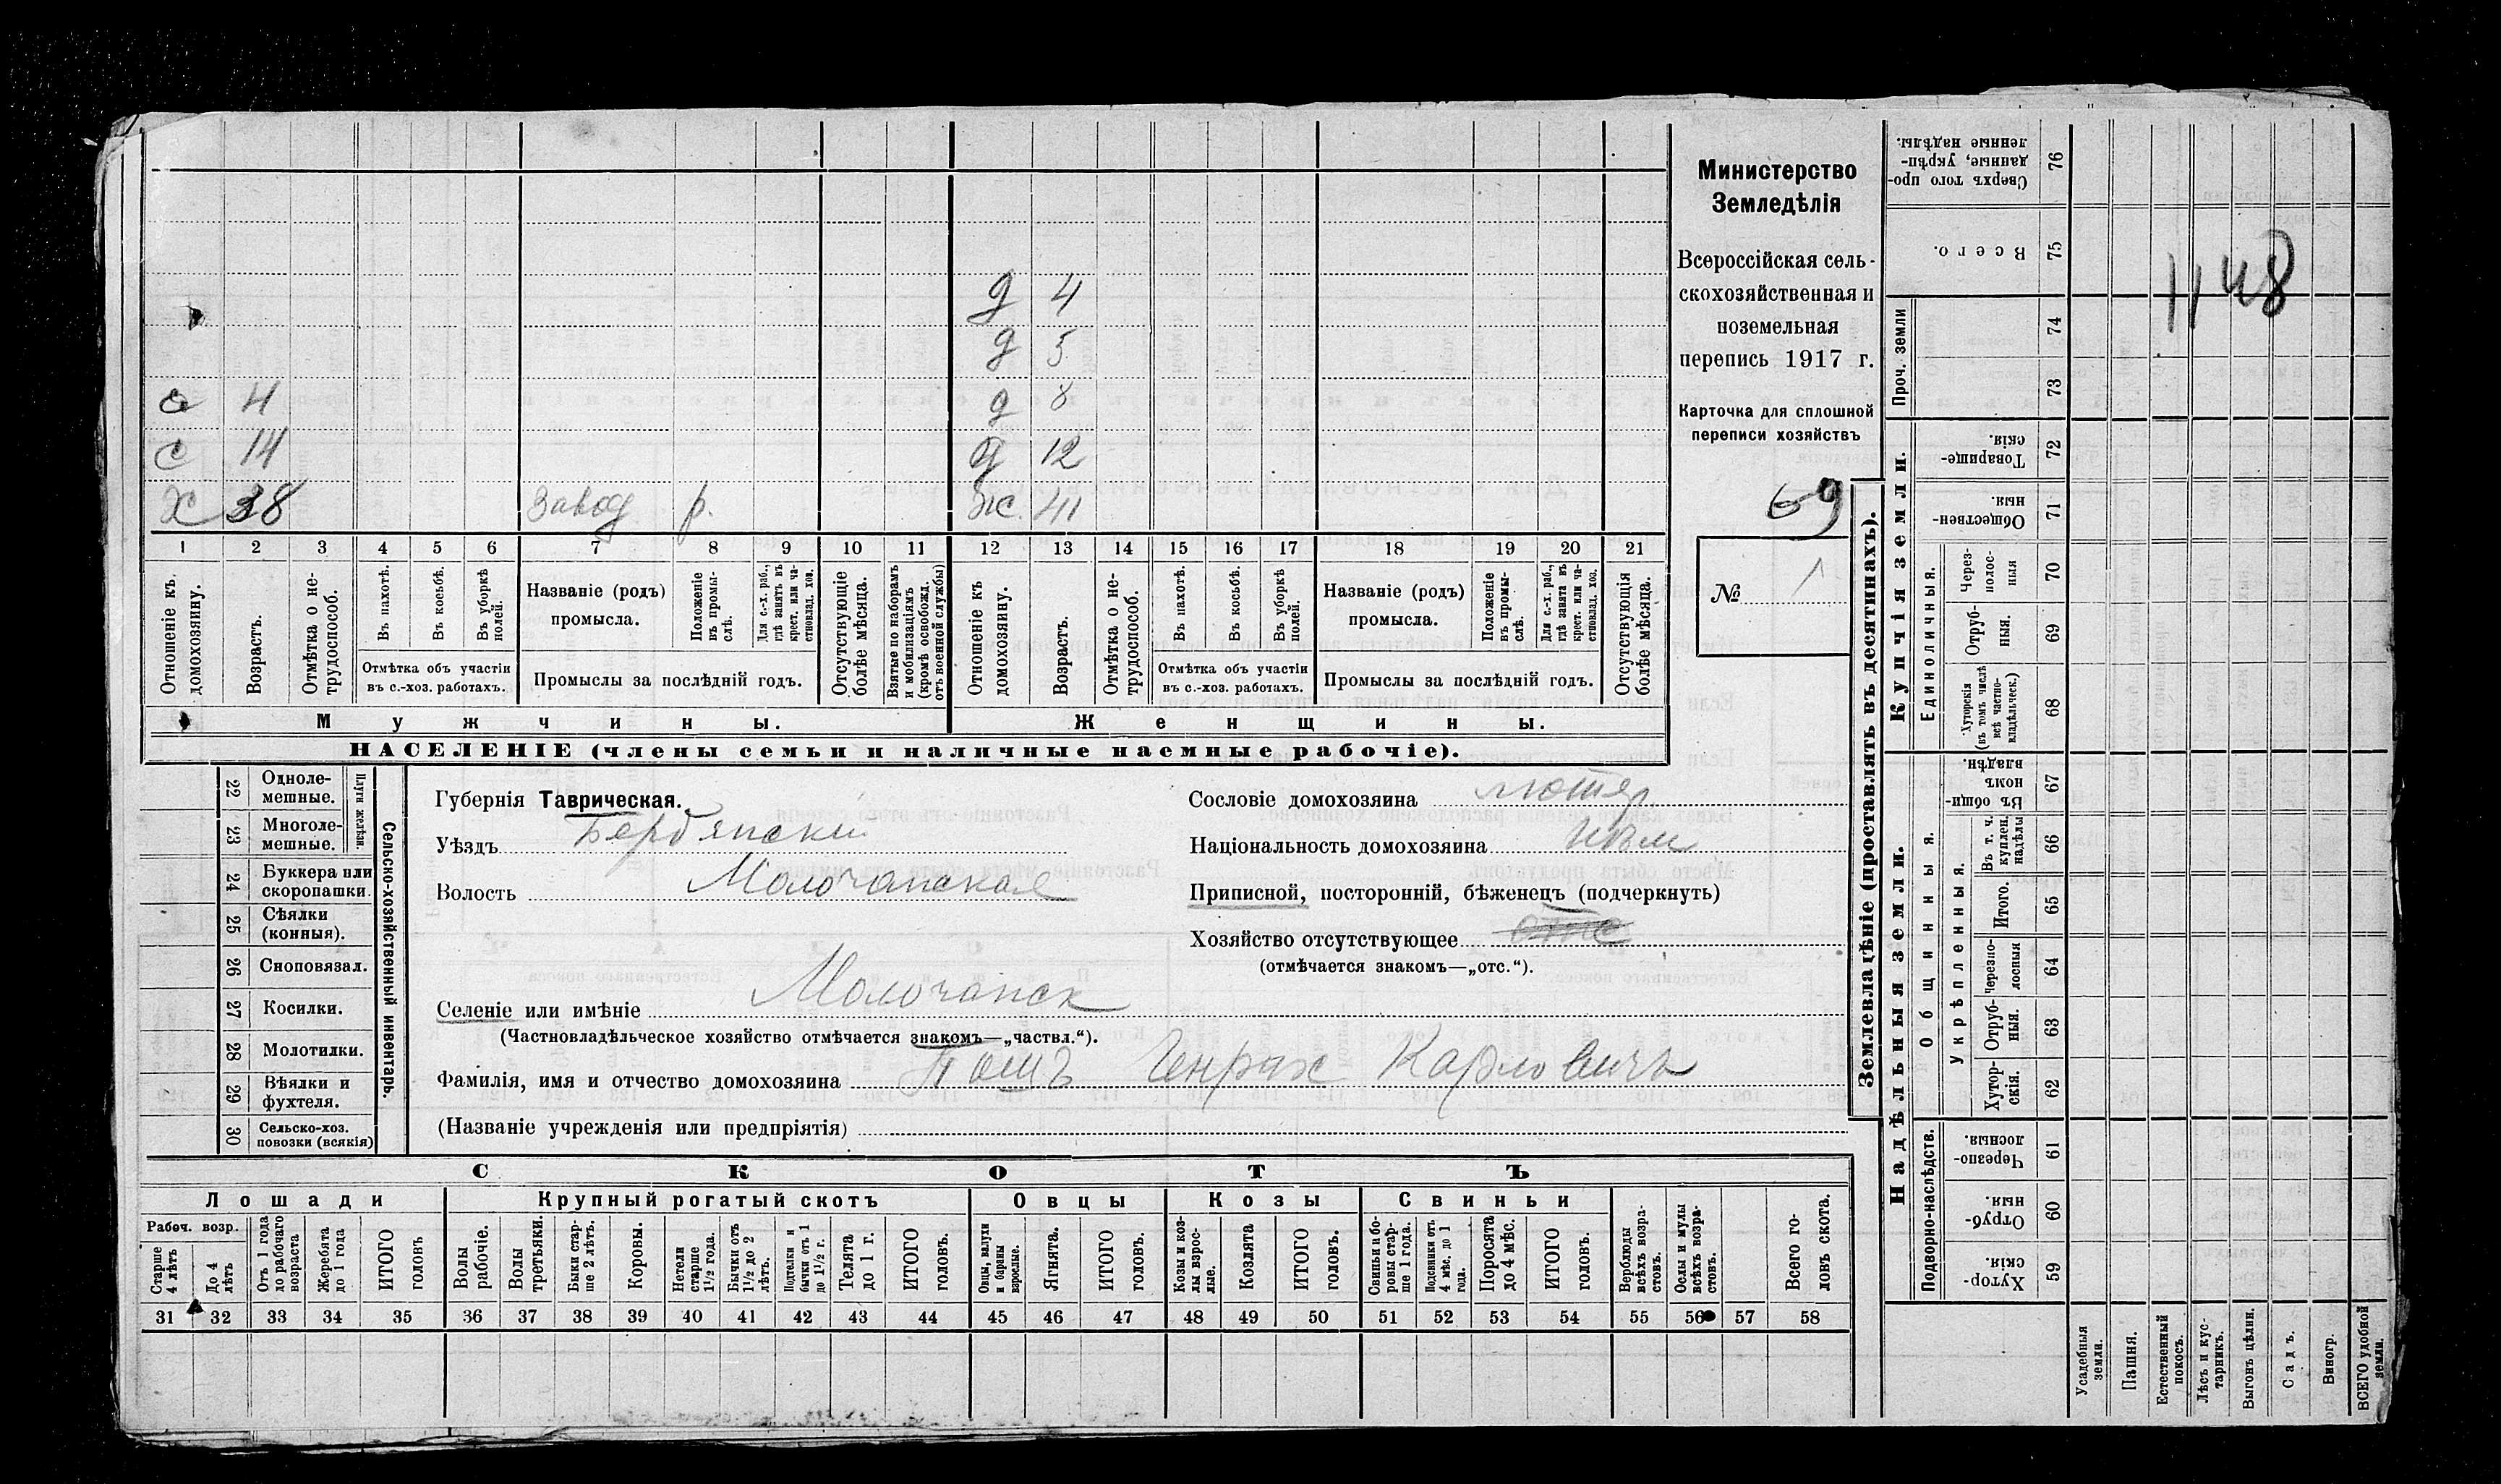 д 4
д 5
а 4 д 8
с 14 д 12
х 38 завод р. ж. 41
1 2 3 4 5 6 7 8 9 10 11 12 13 14 15 16 17 18 19 20 21
Отношеніе къ домохозяину.
Возрастъ.
Отмѣтка о не-
трудоспособ.
Въ пахотѣ.
Въ косьбѣ.
Въ уборкѣ
полей.
Отмѣтка объ участіи
въ с.-хоз. работахъ.
Названіе (родъ)
промысла.
Положеніе
въ промы-
слѣ.
Для с.-х. раб.,
гдѣ занятъ въ
крест. или ча-
стновлад. хоз.
Промыслы за послѣдній годъ.
Отсутствующіе
болѣе мѣсяца.
Взятые по наборамъ
и мобилизаціямъ
(кромѣ освобожд.
отъ военной службы)
Отношеніе къ
домохозяину.
Возрастъ.
Отмѣтка о не-
трудоспособ.
Въ пахотѣ.
Въ косьбѣ.
Въ уборкѣ
полей.
Отмѣтка объ участіи
въ с.-хоз. работахъ.
Названіе (родъ)
промысла.
Положеніе
въ промы-
слѣ.
Для с.-х. раб.,
гдѣ занята въ
крест. или ча-
стновлад. хоз.
Промыслы за послѣдній годъ.
Отсутствующія
болѣе мѣсяца.
Мужчины. Женщины.
НАСЕЛЕНІЕ (члены семьи и наличные наемные рабочіе).
Министерство
Земледѣлія
Всероссійская сель-
скохозяйственная и
поземельная
перепись 1917 г.
Карточка для сплошной
переписи хозяйствъ
69
№ 1
22 Одноле-
мешные.
23 Многоле-
мешные.
Плуги желѣзн.
24 Буккера или
скоропашки.
25 Сѣялки
(конныя).
26 Сноповязал.
27 Косилки.
28 Молотилки.
29 Вѣялки и
фухтеля.
30 Сельско-хоз.
повозки (всякія)
Сельско-хозяйственный инвентарь.
Губернія Таврическая.
Уѣздъ Бердянски
Волость Молочанская
Селеніе или имѣніе Молочанск
(Частновладѣльческое хозяйство отмѣчается знакомъ—„частвл.“).
Фамилія, имя и отчество домохозяина Пошъ Генрих Карловичъ
(Названіе учрежденія или предпріятія)
Сословіе домохозяина лютер
Національность домохозяина нѣм
Приписной, посторонній, бѣженецъ (подчеркнуть)
Хозяйство отсутствующее отс
(отмѣчается знакомъ—„отс.“).
СКОТЪ
Лошади Крупный рогатый скотъ Овцы Козы Свиньи
Рабоч. возр.
Старше
4 лѣтъ
До 4
лѣтъ
Отъ 1 года
до рабочаго
возраста
Жеребята
до 1 года
ИТОГО
головъ
Волы
рабочіе.
Волы
третьяки.
Быки стар-
ше 2 лѣтъ.
Коровы.
Нетели
старше
1½ года.
Бычки отъ
1½ до 2
лѣтъ.
Подтелки и
бычки отъ 1
до 1½ г.
Телята
до 1 г.
ИТОГО
головъ.
Овцы, валухи
и бараны
взрослые.
Ягнята.
ИТОГО
головъ.
Козы и коз-
лы взрос-
лые.
Козлята
ИТОГО
головъ.
Свиньи и бо-
ровы стар-
ше 1 года.
Подсвинки отъ
4 мѣс. до 1
года.
Поросята
до 4 мѣс.
ИТОГО
головъ.
Верблюды
всѣхъ возра-
стовъ.
Ослы и мулы
всѣхъ возра-
стовъ.
Всего го-
ловъ скота.
31 32 33 34 35 36 37 38 39 40 41 42 43 44 45 46 47 48 49 50 51 52 53 54 55 56 57 58
Землевладѣніе (проставлять въ десятинахъ).
Сверхъ того про-
данные, укрѣп-
ленные надѣлы.
76
Всего.
75
1148
Проч. земли
74
73
Купчія земли.
Товарище-
скія.
72
Обществен-
ныя.
71
Единоличныя.
Через-
полос-
ныя
70
Отруб-
ныя.
69
Хуторскія
(въ томъ числѣ
всѣ частно-
владѣльческ.)
68
Надѣльныя земли.
Общинныя.
Въ общи-
номъ
владѣн.
67
Укрѣпленныя.
Въ т. ч.
куплен.
надѣлы
66
Итого.
65
Черезпо-
лосныя
64
Отруб-
ныя.
63
Хутор-
скія.
62
Подворно-наслѣдств.
Черезпо-
лосныя.
61
Отруб-
ныя.
60
Хутор-
скія.
59
Усадебныя
земли.
Пашня.
Естественный
покосъ.
Лѣсъ и кус-
тарникъ.
Выгонъ цѣлин.
Садъ.
Виногр.
ВСЕГО удобной
земли.